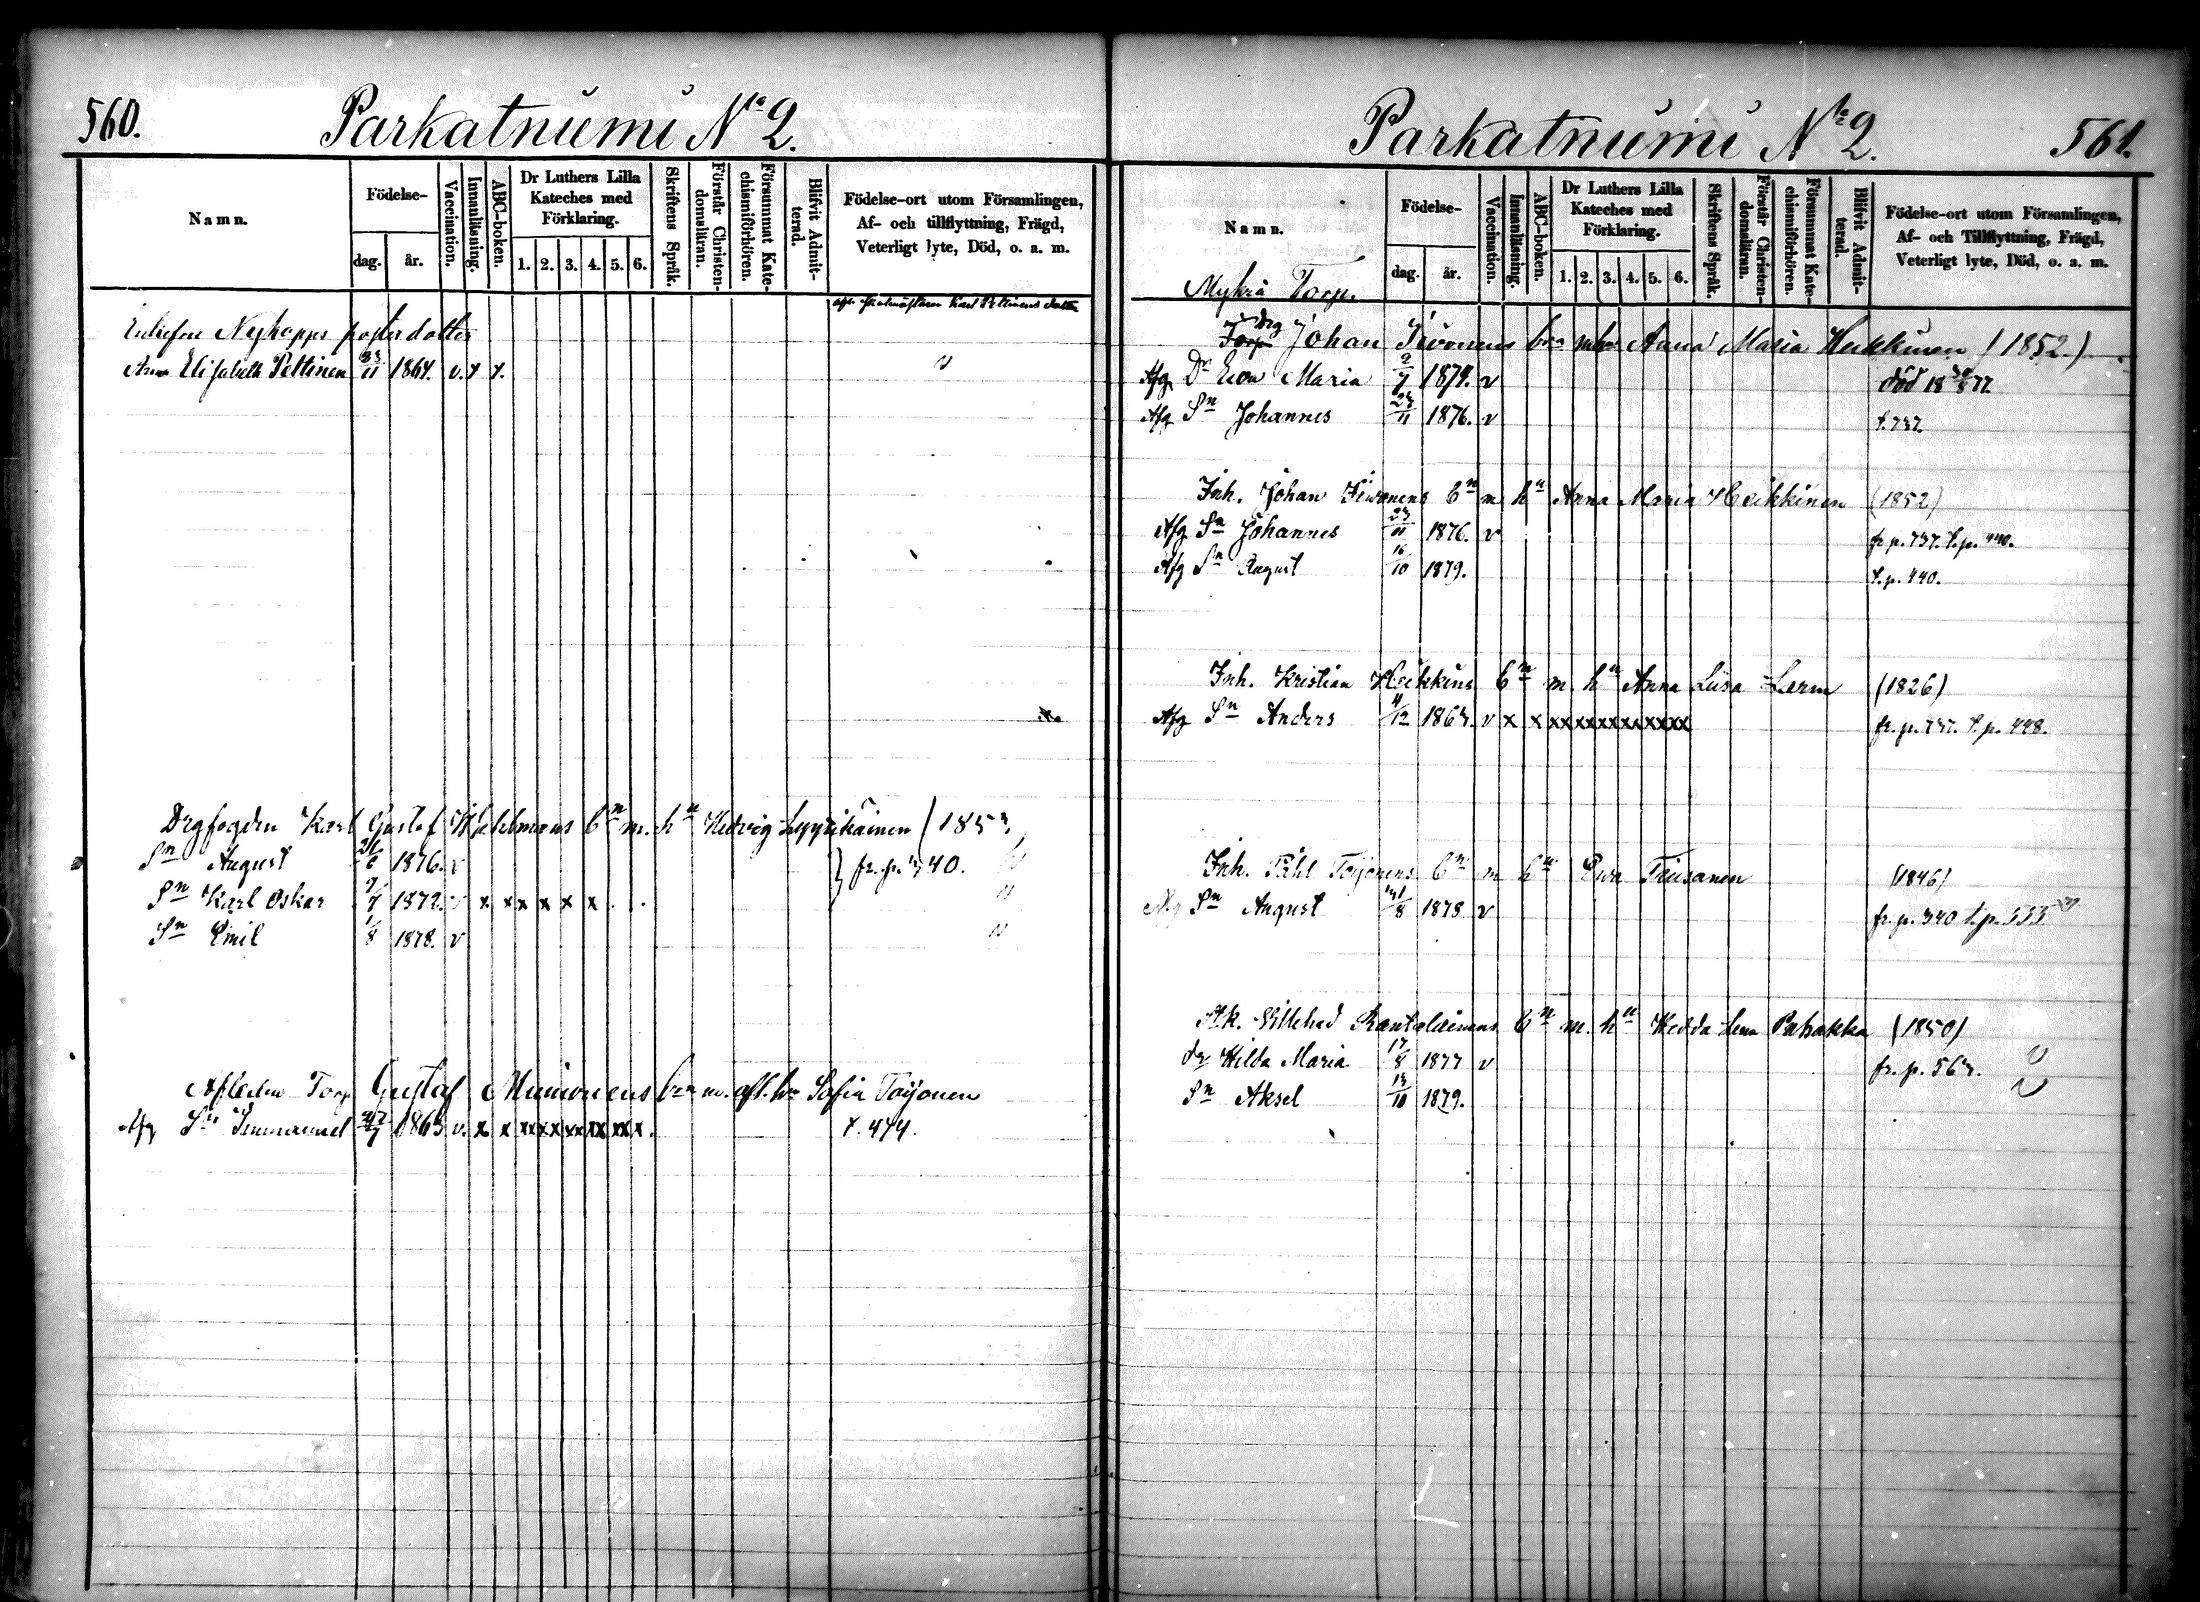 560.
Parkatnúmi No 2.
Namn.
Födelse-
dag.
år.
Vaccination.
Innanläsning.
ABC-boken.
Dr Luthers Lilla Kateches med Förklaring.
1. 2. 3. 4. 5. 6.
Skriftens Språk.
Förstår Christen-domsläran.
Försummat Kate-chismiförhören.
Blifvit Admit-terad.
Födelse-ort utom Församlingen,
Af- och tillflyttning, Frägd,
Veterligt lyte, Död, o. a. m.
Karl Pettinens dotter
Nyhopps fosterdotter
Anna Elisabeth Pettinen 11 1864. v. x x. v
Drgfogden Karl Gustaf bn m. hn Hedvig Leppikäinen (185
Sn August 1876. v } fr. p. 340.
Sn Karl Oskar 7 1872. v x xx x x x . .
Sn Emil 1/8 1878. v
Afledne Torp Gustaf Muinonens brn m. afl. hn Sofia Toijonen
Afg Sn Immanuel 27/7 1863 v. x x xx xx xx xx xx x. t. 474.
561.
Parkatnúmi No 2.
Namn.
Födelse-
dag.
år.
Vaccination.
Innanläsning.
ABC-boken.
Dr Luthers Lilla Kateches med Förklaring.
1. 2. 3. 4. 5. 6.
Skriftens Språk.
Förstår Christen-domsläran.
Försummat Kate-chismiförhören.
Blifvit Admit-terad.
Födelse-ort utom Församlingen,
Af- och Tillflyttning, Frägd,
Veterligt lyte, Död, o. a. m.
Myhrä Torp.
Drg
Torp Johan Iivonens brn m hn Anna Maria Heikkinen (1852.)
Afg Dr Eva Maria 2/7 1874. v död 18 30/8 77
Afg Sn Johannes 23/11 1876. v t. 737
Inh. Johan Iivonens bn m hn Anna Maria Heikkinen (1852)
Afg Sn Johannes 23/11 1876. v fr p. 737. t. p. 440.
Afg Sn August 16/10 1879. t. p. 440.
Inh. Kristian Heikkins bn m. hn Anna Liisa Lerm (1826)
Afg Sn Anders 4/12 1863. v x x xx xx xx xx xx xx fr. p. 737. t. p. 448.
Inh. Påhl Toijonens bn m hn Eva Tiusanen (1846)
Afg Sn August 31/8 1878 v fr. p. 340 t. p. 533
Sk. Villehad Rantalainens bn m. hn Hedda Lena Pahakka (1850)
dr Hilda Maria 17/8 1877 v fr. p. 563. v
Sn Aksel 13/10 1879. v